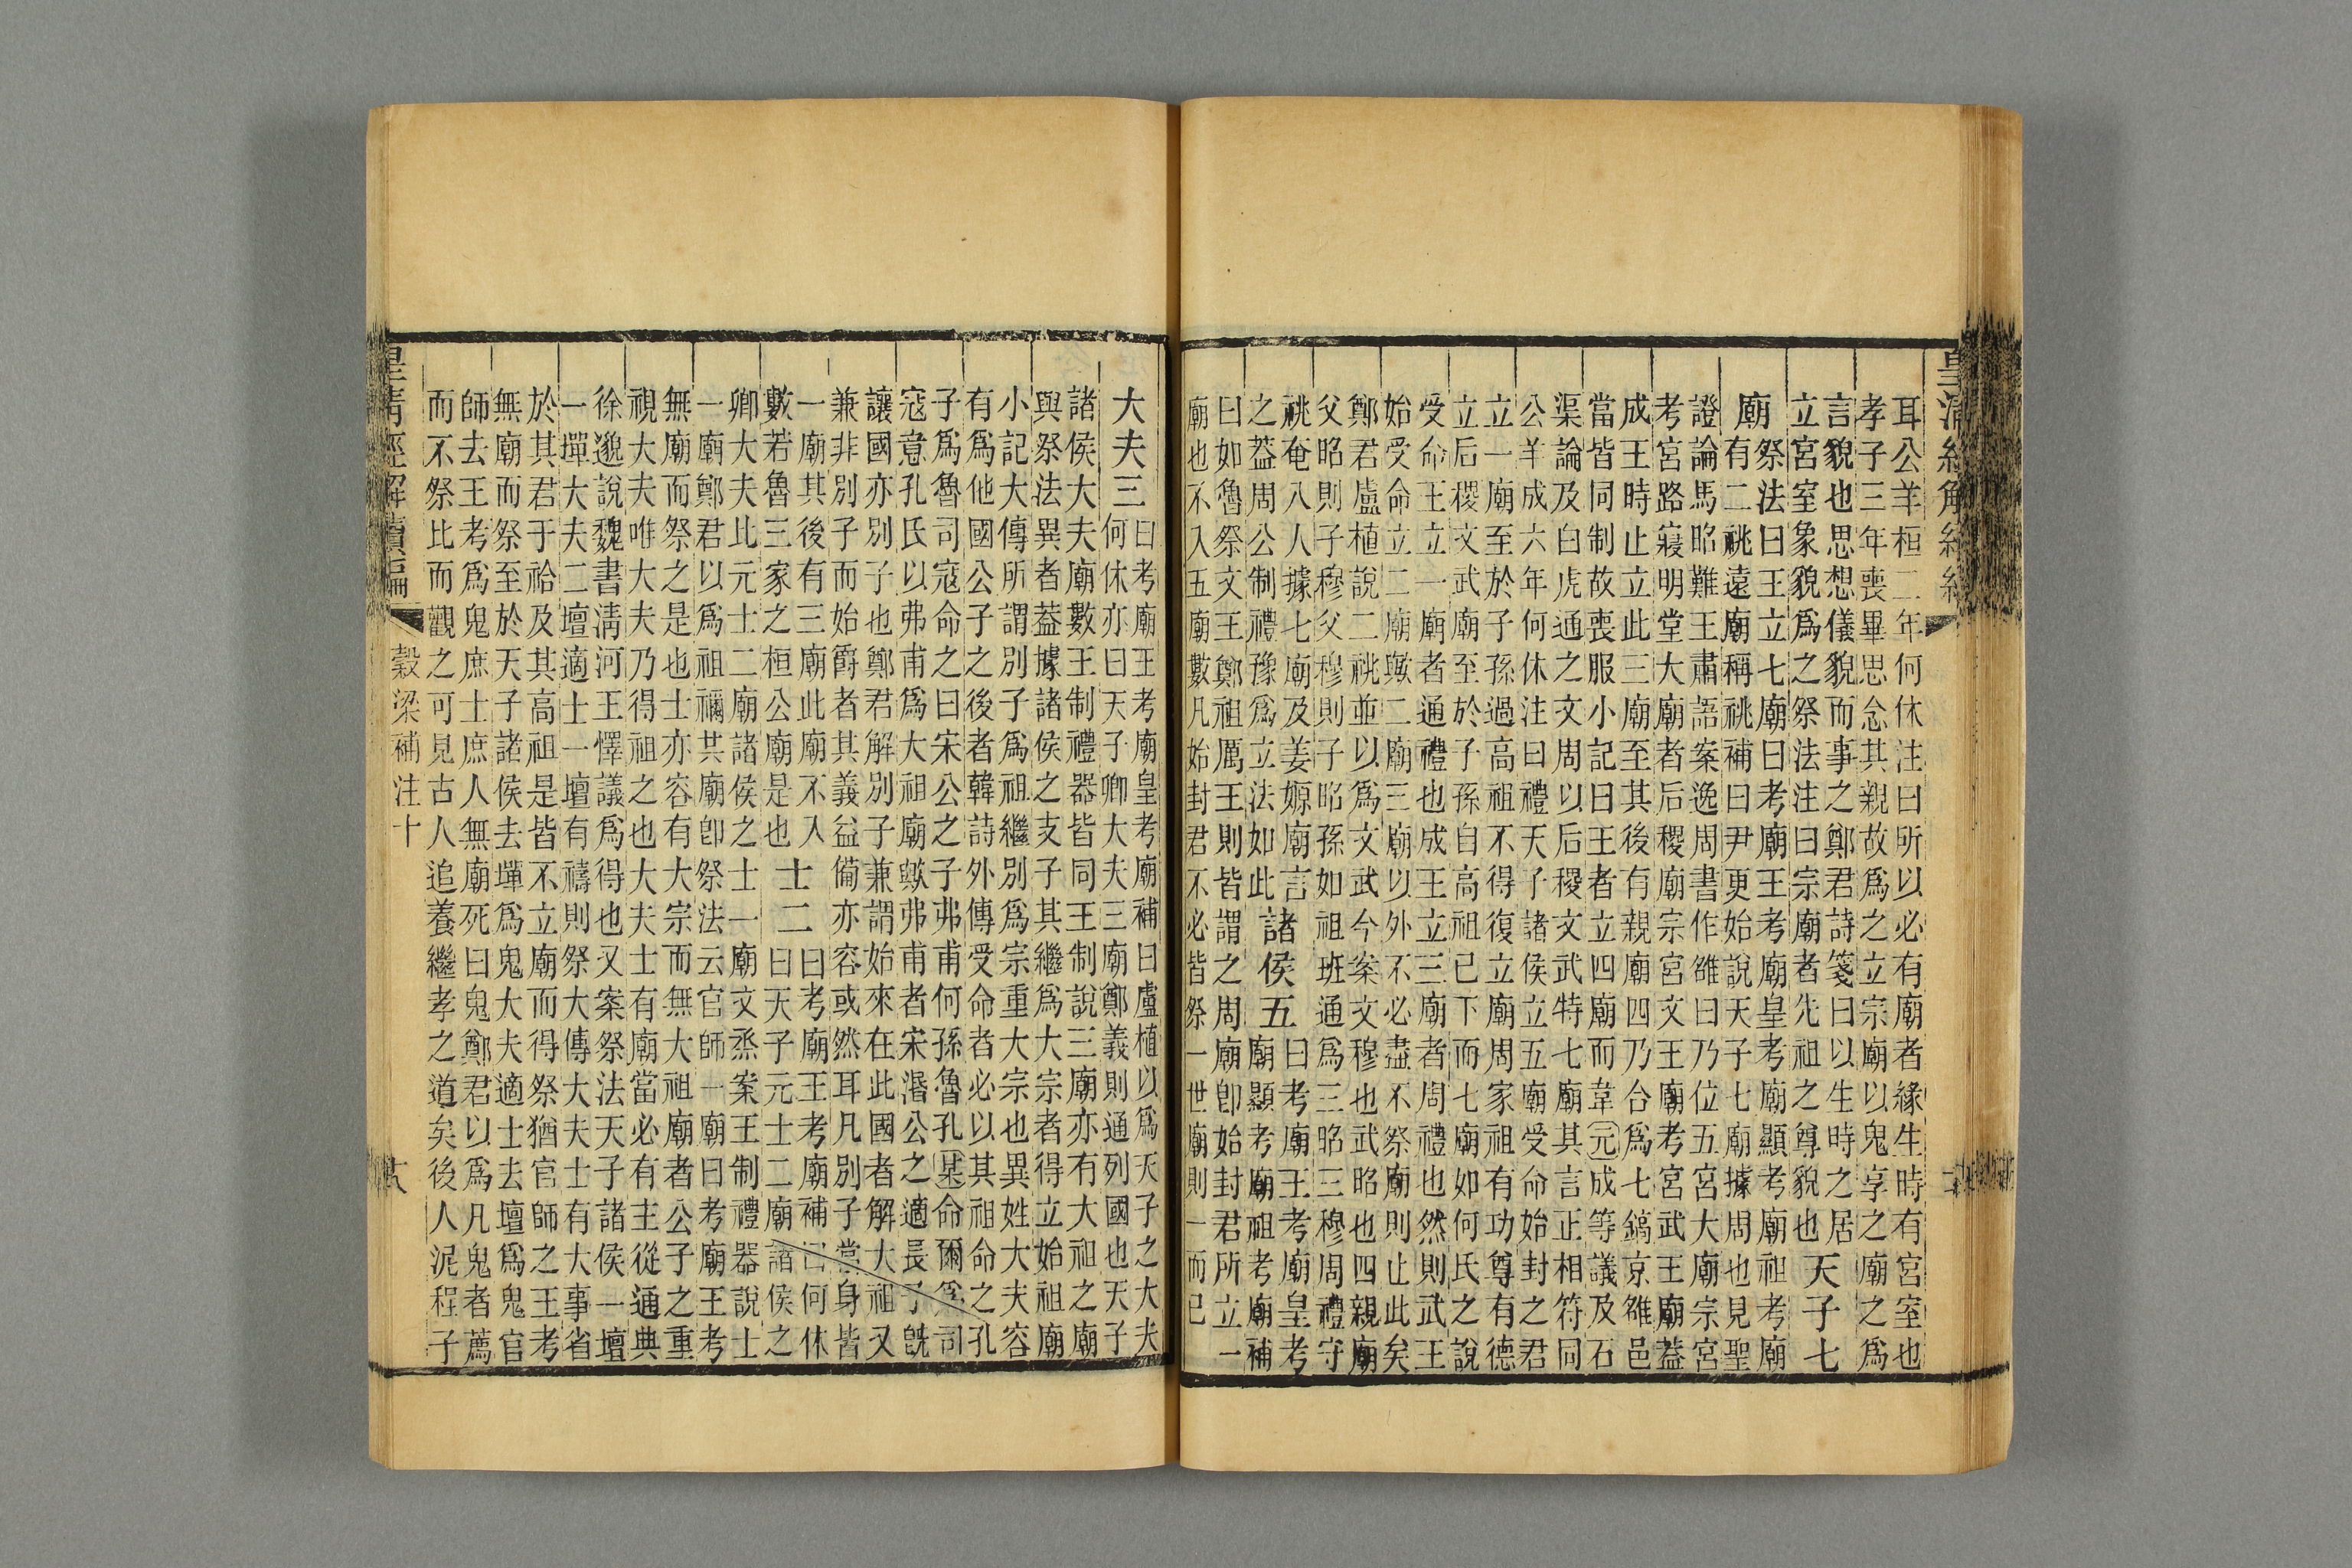 耳公羊桓二年何休注曰所以必有廟者緣生時有宮室也
孝子三年喪畢思念其親故爲之立宗廟以鬼享之廟之爲
言貌也思想儀貌而事之鄭君詩箋曰以生時之居
立宮室象貌爲之祭法注曰宗廟者先祖之尊貌也
天子七
廟
祭法曰王立七廟曰考廟王考廟皇考廟顯考廟祖考廟
有二祧遠廟稱祧補曰尹更始說天子七廟據周也見聖
證論馬昭難王肅語案逸周書作雒曰乃位五宮大廟宗宮
考宮路寢明堂大廟者后稷廟宗宮文王廟考宮武王廟蓋
成王時止立此三廟至其後有親廟四乃合爲七鎬京雒邑
當皆同制故喪服小記曰王者立四廟而韋元成等議及石
渠論及白虎通之文周以后稷文武特七廟其言正相符同
公羊成六年何休注曰禮天子諸侯立五廟受命始封之君
立一廟至於子孫過高祖不得復立廟周家祖有功尊有德
立后稷文武廟至於子孫自高祖已下而七廟如何氏之說
受命王立一廟者通禮也成王立三廟者周禮也然則武王
始受命立二廟歟二廟三廟以外不必盡不祭廟則止此矣
鄭君盧植說二祧並以爲文武今案文穆也武昭也四親廟
父昭則子穆父穆則子昭孫如祖班通爲三昭三穆周禮守
祧奄八人據七廟及姜嫄廟言
之蓋周公制禮豫爲立法如此
諸侯五
曰考廟王考廟皇考
廟顯考廟祖考廟補
曰如魯祭文王鄭祖厲王則皆謂之周廟卽始封君所立一
廟也不入五廟數凡始封君不必皆祭一世廟則一而已
大夫三
曰考廟王考廟皇考廟補曰盧植以爲天子之大夫
何休亦曰天子卿大夫三廟鄭義則通列國也天子
諸侯大夫廟數王制禮器皆同王制說三廟亦有大祖之廟
與祭法異者蓋據諸侯之支子其繼爲大宗者得立始祖廟
小記大傳所謂別子爲祖繼別爲宗重大宗也異姓大夫容
有爲他國公子之後者韓詩外傳受命者必以其祖命之孔
子爲魯司寇命之曰宋公之子弗甫何孫魯孔某命爾爲司
寇意孔氏以弗甫爲大祖廟歟弗甫者宋湣公之適長子旣
讓國亦別子也鄭君解別子兼謂始來在此國者解大祖又
兼非別子而始爵者其義益備亦容或然耳凡別子當身皆
一廟其後有三廟此廟不入
數若魯三家之桓公廟是也
士二
曰考廟王考廟補曰何休
曰天子元士二廟諸侯之
卿大夫比元士二廟諸侯之士一廟文烝案王制禮器說士
一廟鄭君以爲祖禰共廟卽祭法云官師一廟曰考廟王考
無廟而祭之是也士亦容有大宗而無大祖廟者公子之重
視大夫唯大夫乃得祖之也大夫士有廟當必有主從通典
徐邈說魏書淸河王懌議爲得也又案祭法天子諸侯一壇
一墠大夫二壇適士一壇有禱則祭大傳大夫士有大事省
於其君于祫及其高祖是皆不立廟而得祭猶官師之王考
無廟而祭至於天子諸侯去墠爲鬼大夫適士去壇爲鬼官
師去王考爲鬼庶士庶人無廟死曰鬼鄭君以爲凡鬼者薦
而不祭比而觀之可見古人追養繼孝之道矣後人泥程子
皇淸經解續編
穀梁補注十